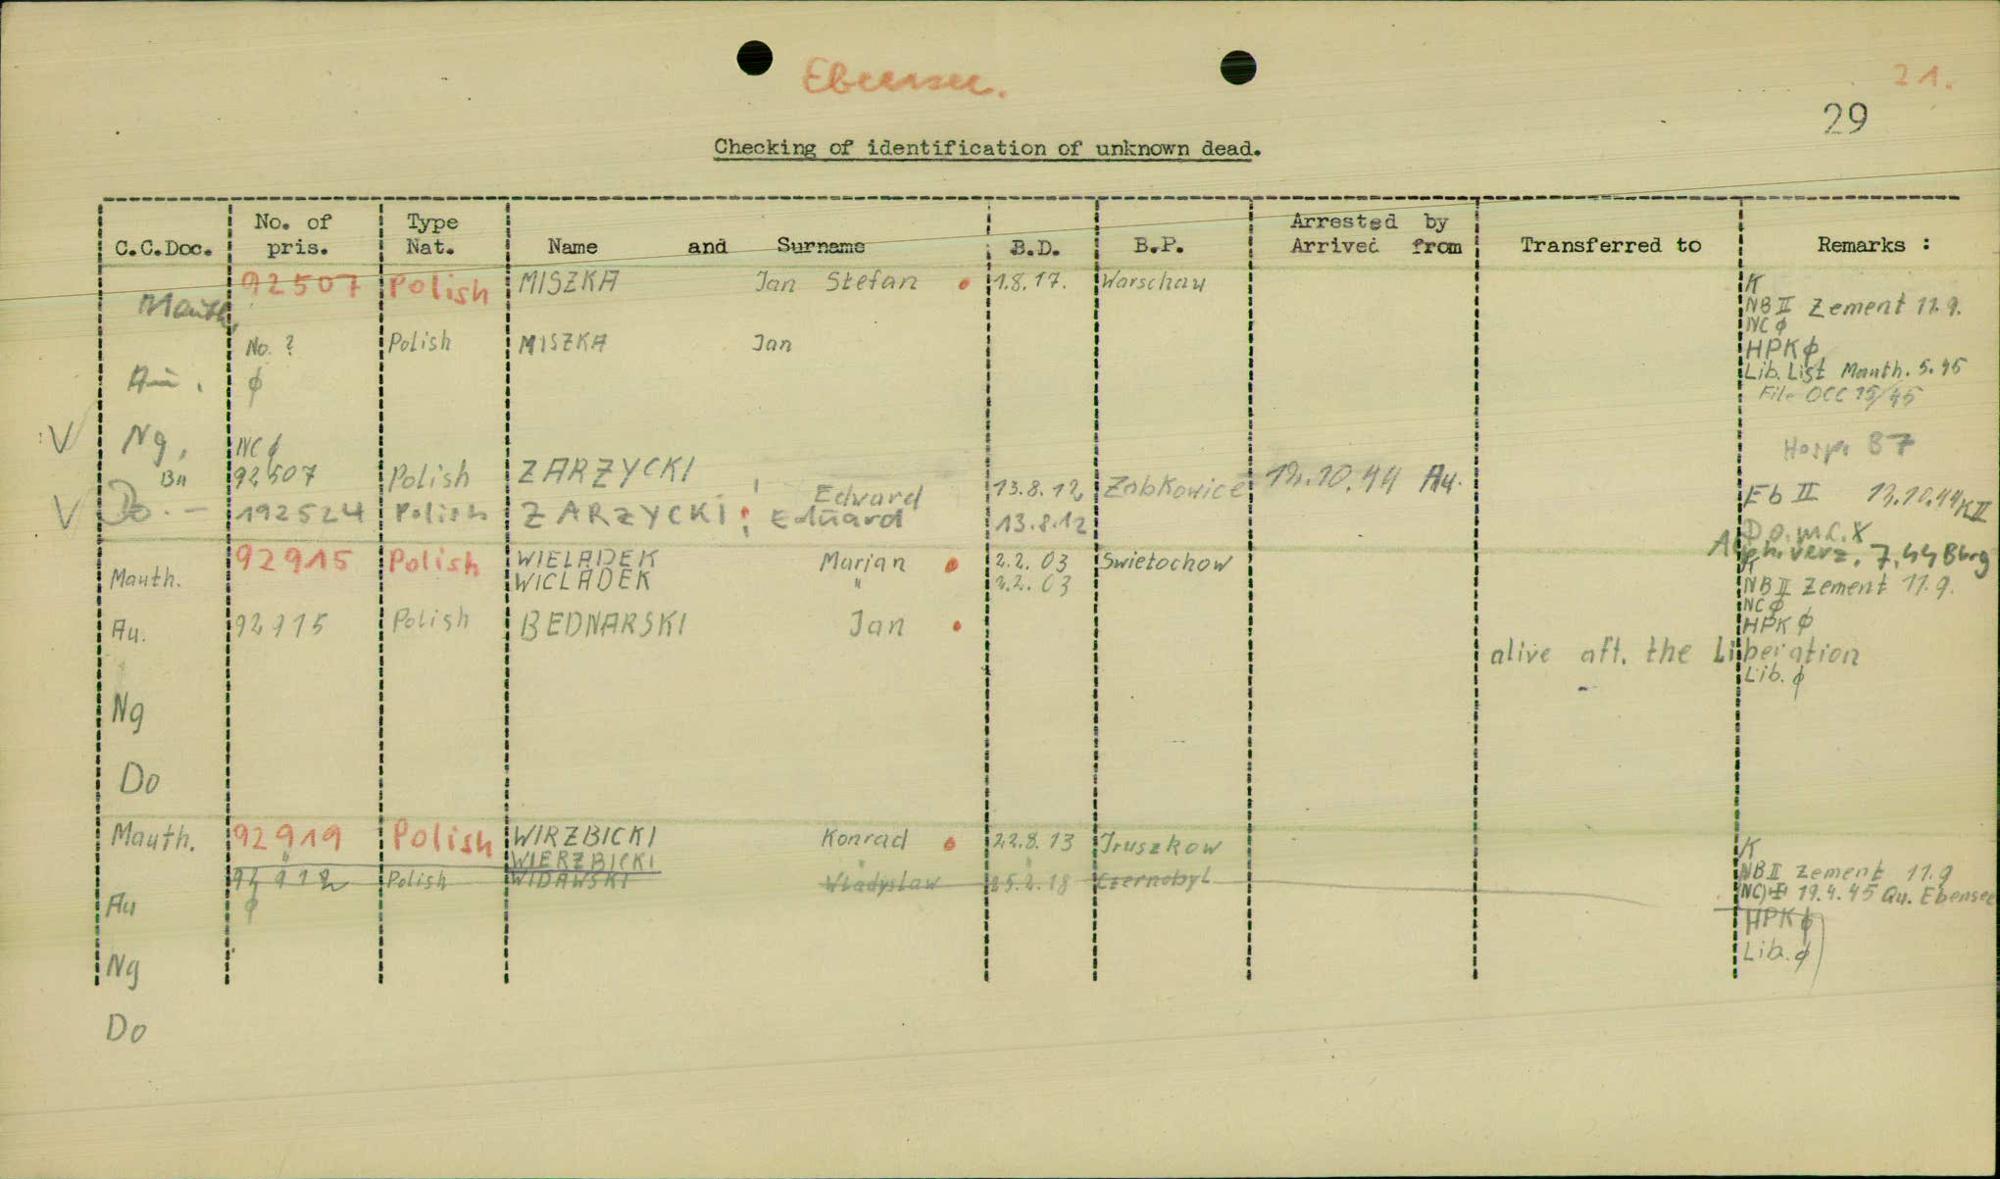 Ebensee.
21.
29
Checking of identification of unknown dead.
C.C.Doc. No. of pris. Type Nat. Name and Surname B.D. B.P. Arrested by Arrived from Transferred to Remarks :
Mauth. 92507 Polish MISZKA Jan Stefan 1.8.17. Warschau K
NB II Zement 11.9.
NC ϕ
No. ? Polish MISZKA Jan HPK ϕ
Lib. List Mauth. 5.45
Au. ϕ File OCC 15/45
V Ng, NC ϕ Hosp. 87
Bu 92507 Polish ZARZYCKI Edward 13.8.12 Zabkowice 12.10.44 Au. Eb II 13.10.44 K II
V Do. — 192524 Polish ZARZYCKI Eduard 13.8.12 Do. m.C. X
Alph. verz. 7.44 Bbrg
Mauth. 92915 Polish WIELADEK Marjan 2.2.03 Swietochow K
WICLADEK " 2.2.03 NB II Zement 11.9.
NC ϕ
Au. 92915 Polish BEDNARSKI Jan HPK ϕ
alive aft. the Liberation
Lib. ϕ
Ng
Do
Mauth. 92919 Polish WIRZBICKI Konrad 22.8.13 Jruszkow K
" WIERZBICKI "
Polish WIDAWSKI Wladyslaw 25.2.18 Czernobyl NB II Zement 11.9
Au ϕ (NC) 19.4.45 Qu. Ebensee
HPK ϕ
Lib. ϕ
Ng
Do